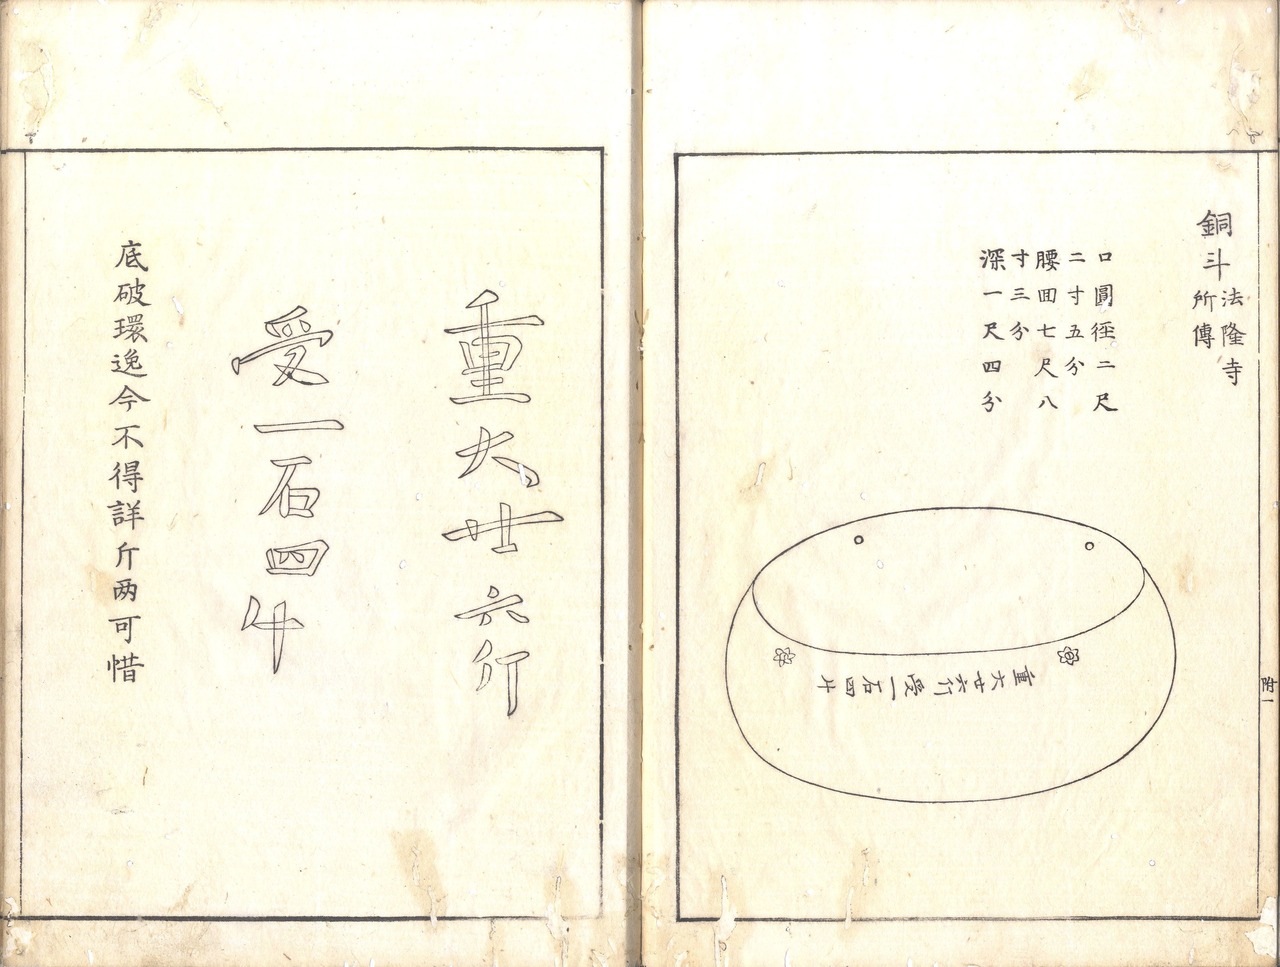 銅斗
法隆寺
所傳
口圓徑二尺
二寸五分
腰囬七尺八
寸三分
深一尺四分
重大廿六斤受一石四升
附一
重大廿六斤
受一石四升
底破環逸今不得詳斤两可惜